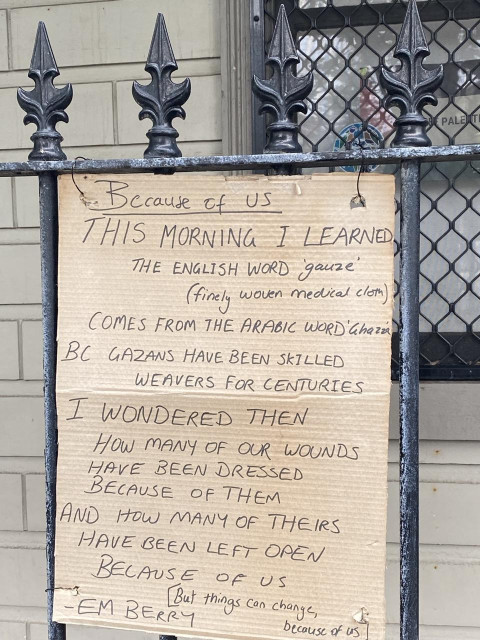 Because of US
THIS MORNING I LEARNED
THE ENGLISH WORD 'gauze'
(finely woven medical cloth)
COMES FROM THE ARABIC WORD 'Ghazza
BC GAZANS HAVE BEEN SKILLED
WEAVERS FOR CENTURIES
I WONDERED THEN
HOW MANY OF OUR WOUNDS
HAVE BEEN DRESSED
BECAUSE OF THEM
AND HOW MANY OF THEIRS
HAVE BEEN LEFT OPEN
BECAUSE OF US
-EM BERRY
[But things can change,
because of us]